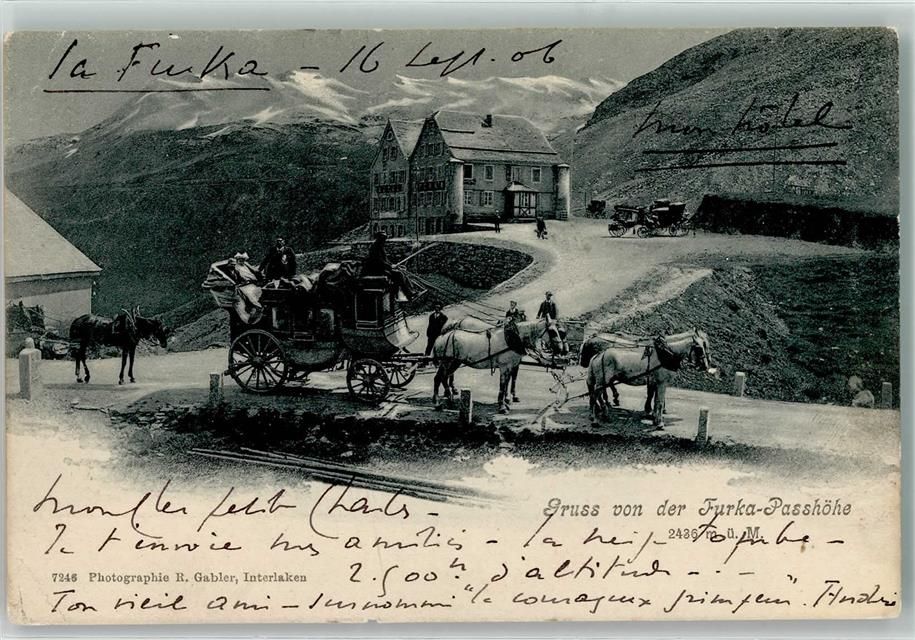 La Furka - 16 Sept. 06
mon hôtel
Gruss von der Furka-Passhöhe
2436 m. ü. M.
Mon cher petit Charles -
Je t'envoie mes amitiés - la neige tombe -
7246 Photographie R. Gabler, Interlaken
2.500 m d'altitude - . - -
Ton vieil ami - surnommé "le courageux grimpeur". André